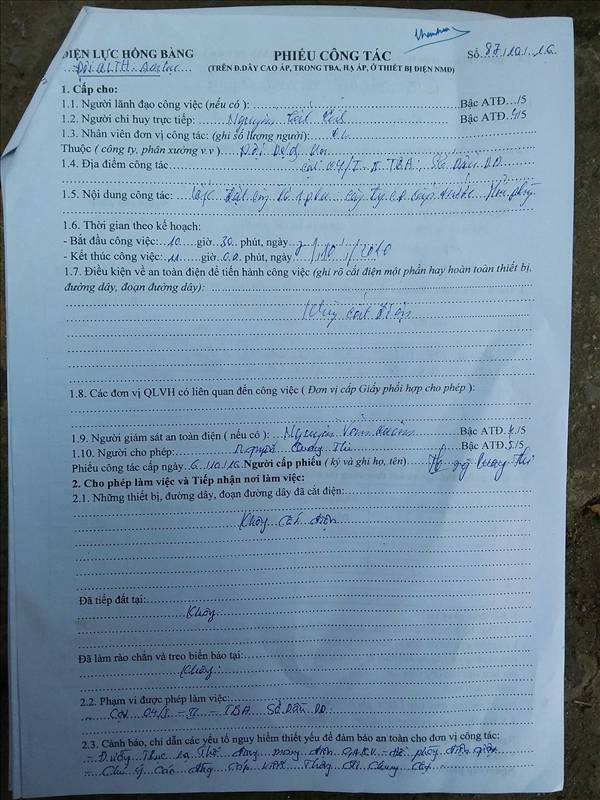 ĐIỆN LỰC HỒNG BÀNG
PHIẾU CÔNG TÁC
Số 87/10/16
Đội QLTH
(TRÊN Đ.DÂY CAO ÁP, TRONG TBA, HẠ ÁP, Ở THIẾT BỊ ĐIỆN NMĐ)
1. Cấp cho:
1.1. Người lãnh đạo công việc (nếu có ): Bậc ATĐ..../5
1.2. Người chỉ huy trực tiếp: Nguyễn Bậc ATĐ.4/5
1.3. Nhân viên đơn vị công tác: (ghi số lượng người):
Thuộc ( công ty, phân xưởng v.v )
1.4. Địa điểm công tác Cột 04/I - II TBA Sở Dầu DD
1.5. Nội dung công tác: Lắp đặt công tơ 1 pha cty CP cấp nước Hải phòng
1.6. Thời gian theo kế hoạch:
- Bắt đầu công việc: 10 giờ 30 phút, ngày / 10 /
- Kết thúc công việc: 11 giờ phút, ngày / 10 /
1.7. Điều kiện về an toàn điện để tiến hành công việc (ghi rõ cắt điện một phần hay hoàn toàn thiết bị,
đường dây, đoạn đường dây):
Không cắt điện
1.8. Các đơn vị QLVH có liên quan đến công việc ( Đơn vị cấp Giấy phối hợp cho phép ):
1.9. Người giám sát an toàn điện ( nếu có ): Nguyễn Văn Bậc ATĐ.4/5
1.10. Người cho phép: Thi Bậc ATĐ.5/5
Phiếu công tác cấp ngày 6/10/16 Người cấp phiếu ( ký và ghi họ, tên) Thi
2. Cho phép làm việc và Tiếp nhận nơi làm việc:
2.1. Những thiết bị, đường dây, đoạn đường dây đã cắt điện:
Không cắt điện
Đã tiếp đất tại:
Không
Đã làm rào chắn và treo biển báo tại:
Không
2.2. Phạm vi được phép làm việc:
Cột 04/I - II - TBA Sở Dầu DD
2.3. Cảnh báo, chỉ dẫn các yếu tố nguy hiểm thiết yếu để đảm bảo an toàn cho đơn vị công tác:
- Đường đang mang điện 0,4KV - đề phòng điện giật
- Chú ý các dây cáp viễn thông đi chung cột